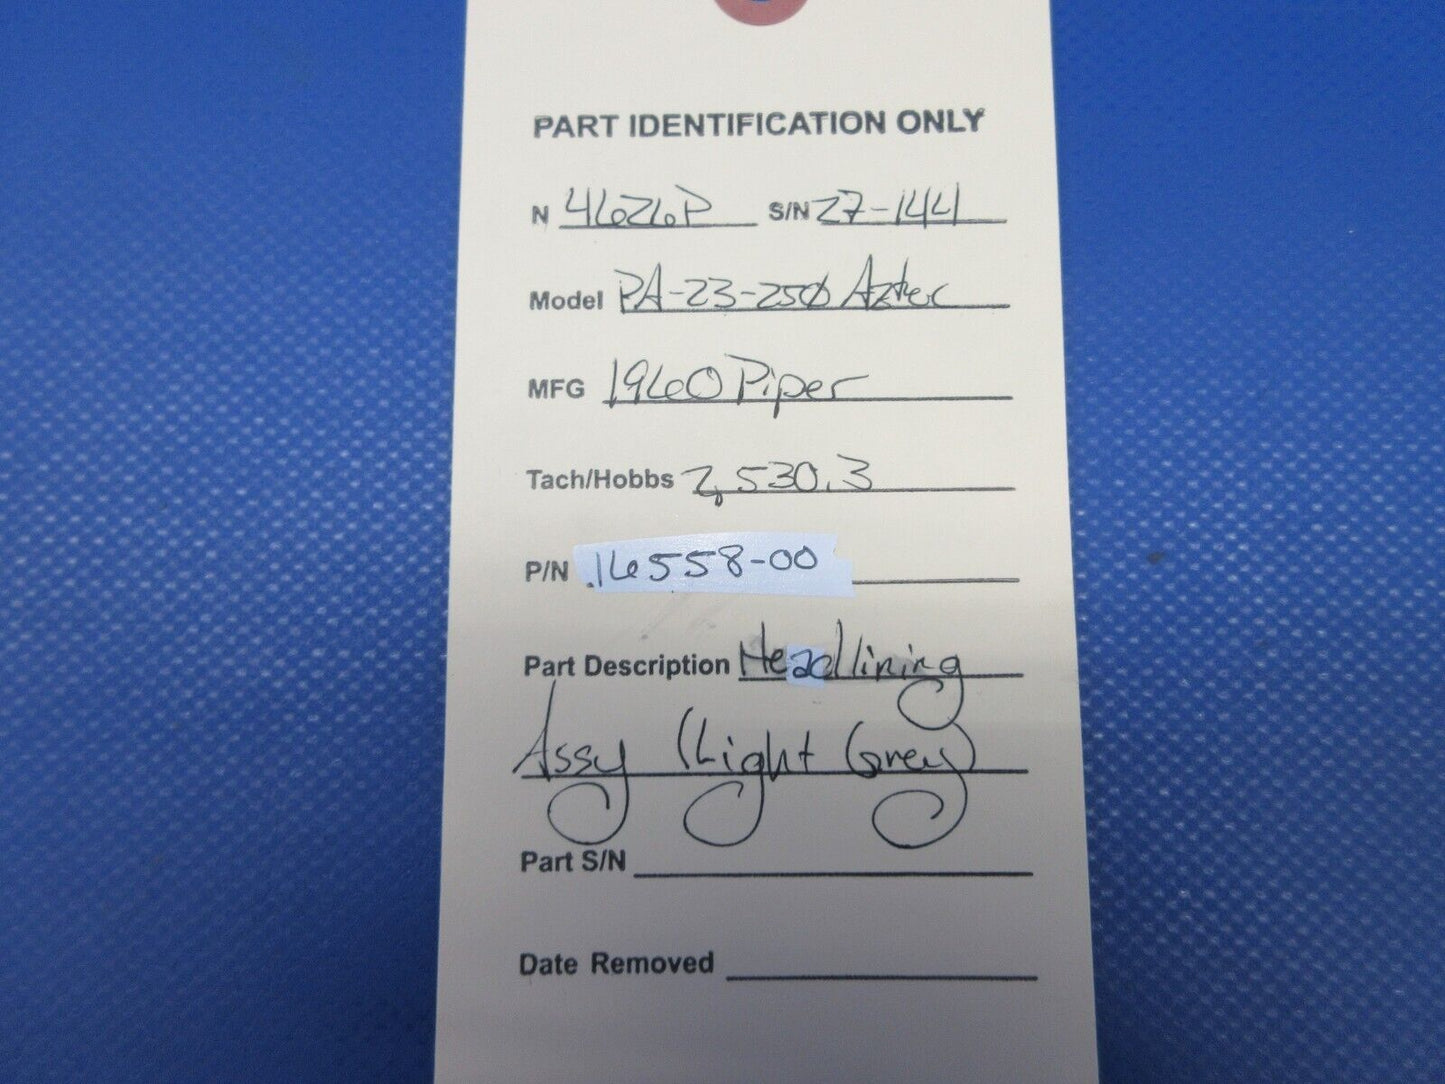 PART IDENTIFICATION ONLY
N 4626P S/N 27-144
Model PA-23-250 Aztec
MFG 1960 Piper
Tach/Hobbs 2,530.3
P/N 16558-00
Part Description Headlining
Assy (Light Grey)
Part S/N
Date Removed